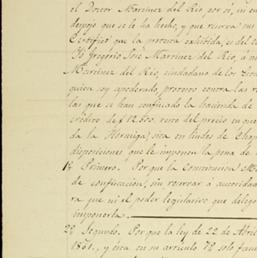 el Doctor Martinez del Rio, por sí, en un
despojo que se le ha hecho, y que reserva sus
Certifico: que la protesta exhibida, es del te
"Yo Gregorio José Martinez del Rio, á n
Martinez del Rio, ciudadano de los Esta
quien soy apoderado, protesto contra las
las que se han confiscado la hacienda de
crédito de $12.500 resto del precio en que
de la Hormiga, sita en lindes de Chap
disposiciones que le imponen la pena de
1º Primero. Porque la Constitucion
de confiscacion, sin reservar á autoridad
ra que ni el poder legislativo que delegó
imponerla.
2º Segundo. Porque la ley de 22 de Abril
1861, y ésta en su artículo 72 solo facu